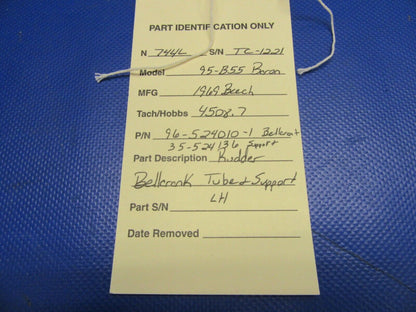 PART IDENTIFICATION ONLY
N 744L S/N TC-1221
Model 95-B55 Baron
MFG 1969 Beech
Tach/Hobbs 4508.7
P/N 96-524010-1 Bellcrank
35-524136 Support
Part Description Rudder
Bellcrank Tube & Support
Part S/N LH
Date Removed